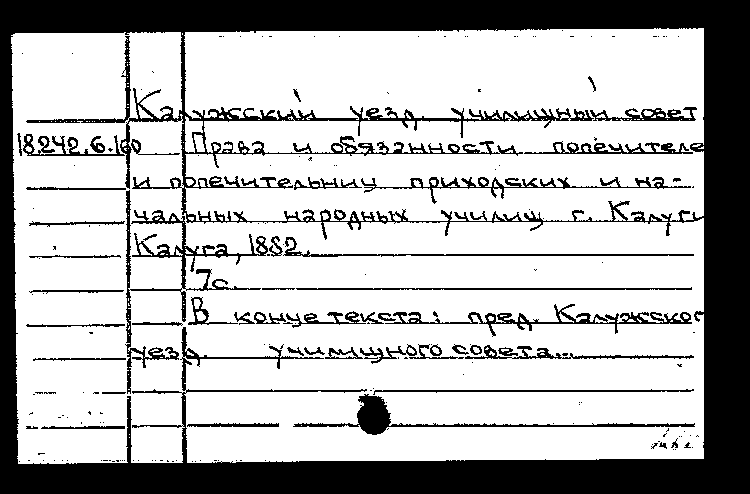 Калужский уезд. училищный совет
18.242.6.160 Права и обязанности попечителе
и попечительниц приходских и на-
чальных народных училищ г. Калуги
Калуга, 1882.
7с.
В конце текста: пред. Калужског
уезд. училищного совета...